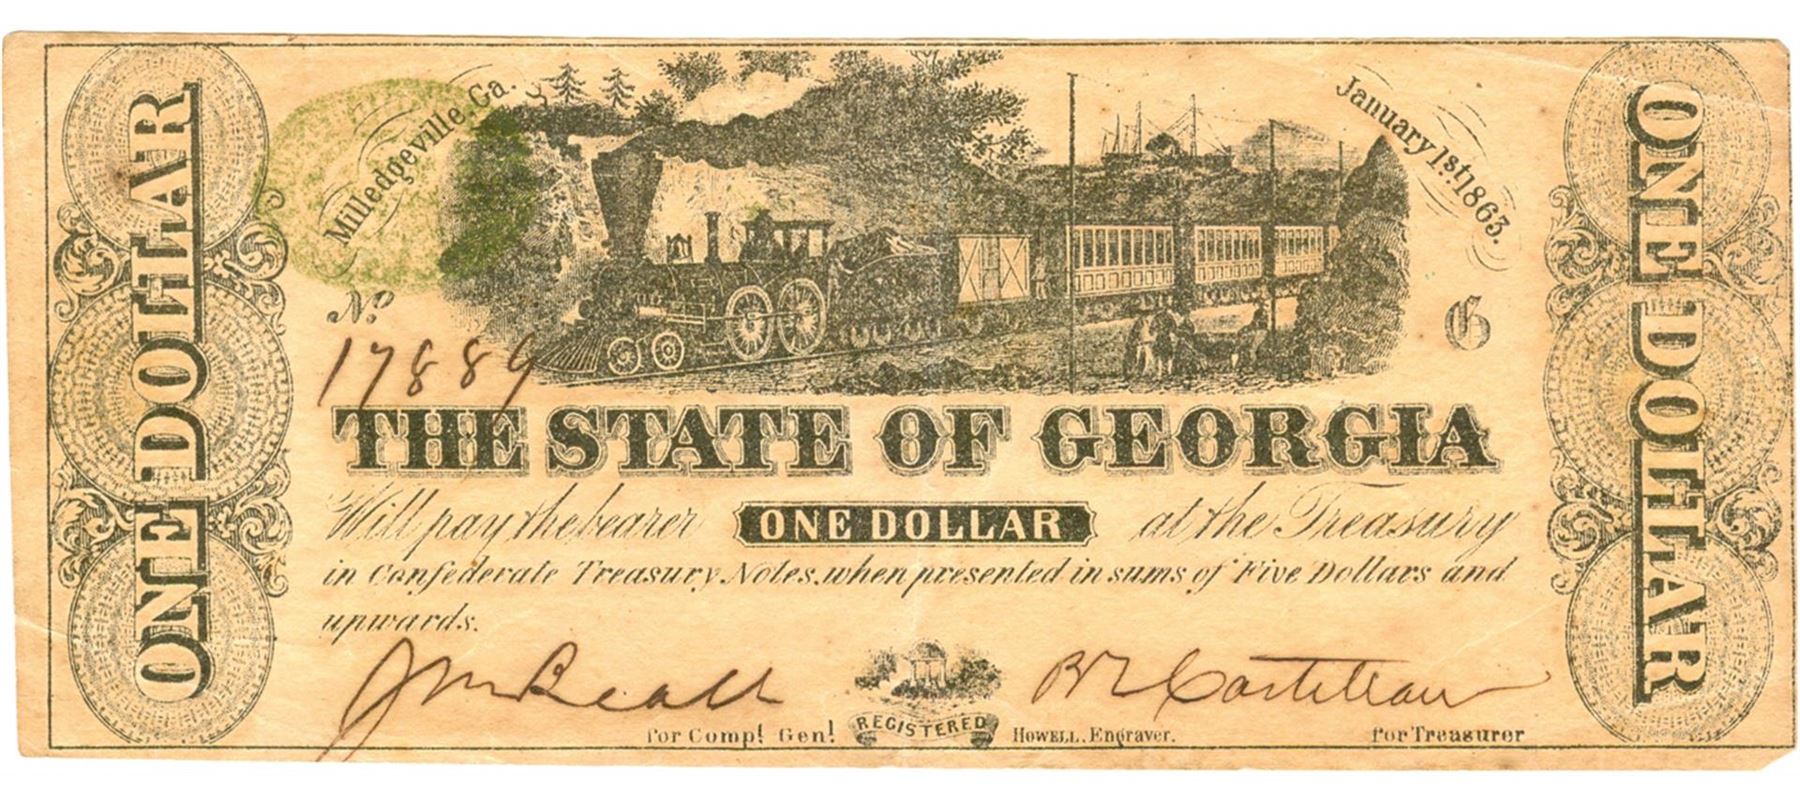 ONE DOLLAR
Milledgeville, Ga.
January 1st 1863.
No.
17889
G
THE STATE OF GEORGIA
Will pay the bearer ONE DOLLAR at the Treasury
in Confederate Treasury Notes, when presented in sums of Five Dollars and
upwards.
J M Beall
for Compt. Genl.
REGISTERED
HOWELL, Engraver.
for Treasurer
ONE DOLLAR